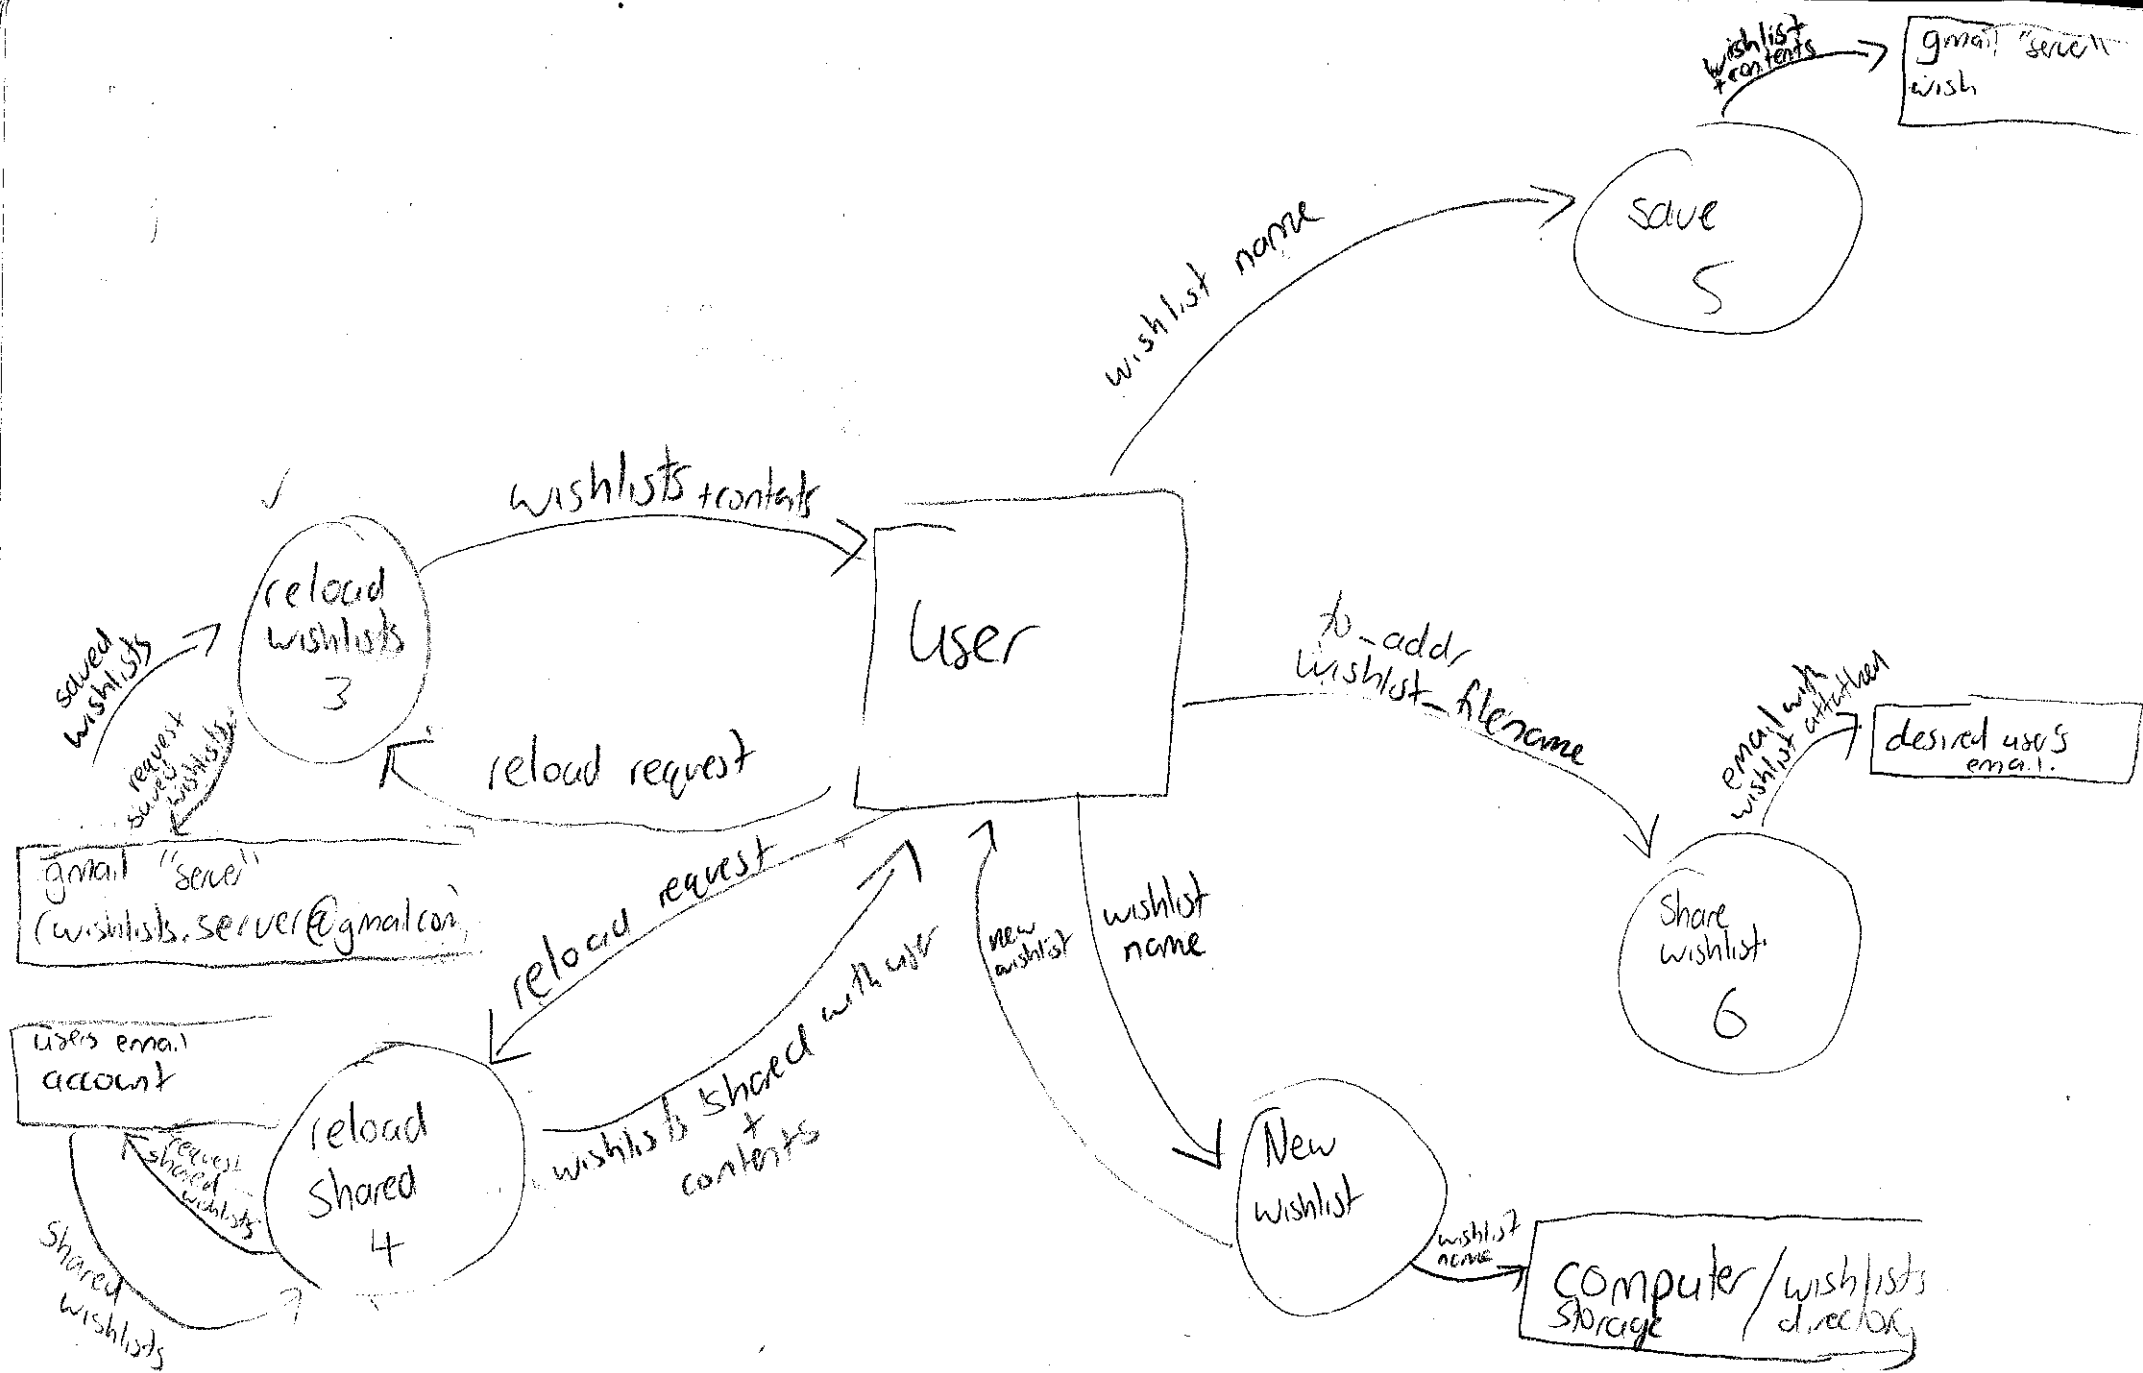 wishlist
+ contents
gmail "server"
wish
save
5
wishlist name
wishlists + contents
reload
wishlists
3
User
saved
wishlists
request
saved
wishlists
reload request
to_addr
wishlist_filename
email with
wishlist attatched
desired user's
email.
gmail "server"
(wishlists.server@gmail.com)
reload request
new
wishlist
wishlist
name
Share
wishlist
6
users email
account
reload
Shared
4
request
shared
wishlists
Shared
wishlists
wishlists shared with user
+
contents
New
wishlist
wishlist
name
computer / wishlists
storage directory